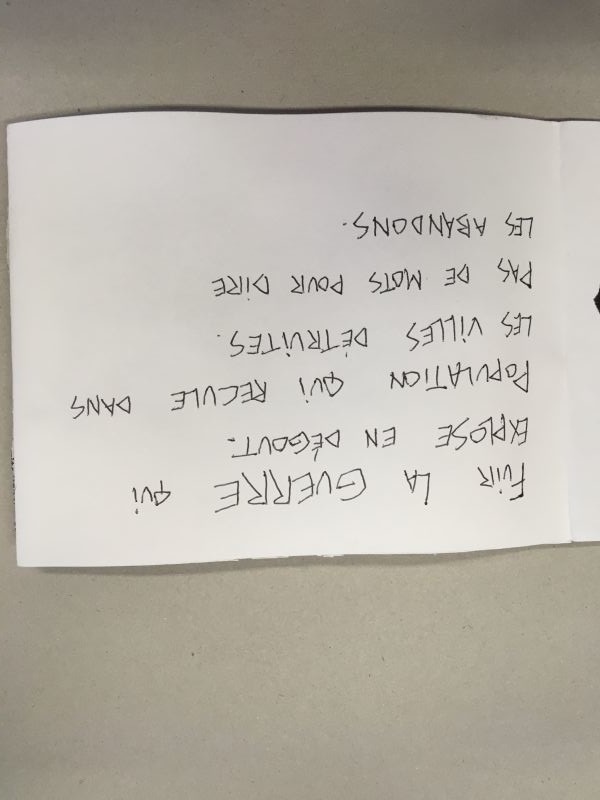 FUIR LA GUERRE QUI
EXPLOSE EN DÉGOUT.
POPULATION QUI RECULE DANS
LES VILLES DÉTRUITES.
PAS DE MOTS POUR DIRE
LES ABANDONS.